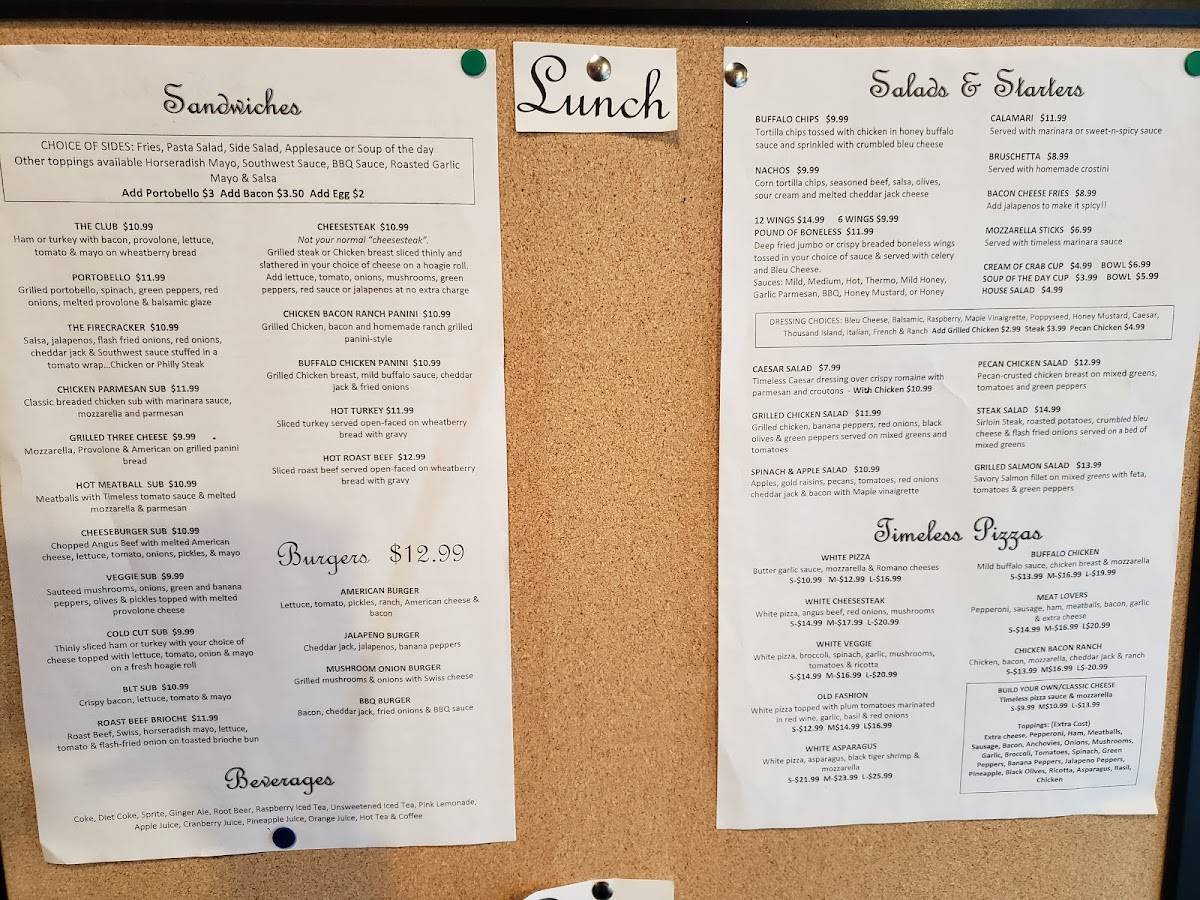 Lunch
Sandwiches
CHOICE OF SIDES: Fries, Pasta Salad, Side Salad, Applesauce or Soup of the day
Other toppings available Horseradish Mayo, Southwest Sauce, BBQ Sauce, Roasted Garlic
Mayo & Salsa
Add Portobello $3 Add Bacon $3.50 Add Egg $2
THE CLUB $10.99
Ham or turkey with bacon, provolone, lettuce,
tomato & mayo on wheatberry bread
PORTOBELLO $11.99
Grilled portobello, spinach, green peppers, red
onions, melted provolone & balsamic glaze
THE FIRECRACKER $10.99
Salsa, jalapenos, flash fried onions, red onions,
cheddar jack & Southwest sauce stuffed in a
tomato wrap...Chicken or Philly Steak
CHICKEN PARMESAN SUB $11.99
Classic breaded chicken sub with marinara sauce,
mozzarella and parmesan
GRILLED THREE CHEESE $9.99
Mozzarella, Provolone & American on grilled panini
bread
HOT MEATBALL SUB $10.99
Meatballs with Timeless tomato sauce & melted
mozzarella & parmesan
CHEESEBURGER SUB $10.99
Chopped Angus Beef with melted American
cheese, lettuce, tomato, onions, pickles, & mayo
VEGGIE SUB $9.99
Sauteed mushrooms, onions, green and banana
peppers, olives & pickles topped with melted
provolone cheese
COLD CUT SUB $9.99
Thinly sliced ham or turkey with your choice of
cheese topped with lettuce, tomato, onion & mayo
on a fresh hoagie roll
BLT SUB $10.99
Crispy bacon, lettuce, tomato & mayo
ROAST BEEF BRIOCHE $11.99
Roast Beef, Swiss, horseradish mayo, lettuce,
tomato & flash-fried onion on toasted brioche bun
CHEESESTEAK $10.99
Not your normal "cheesesteak".
Grilled steak or Chicken breast sliced thinly and
slathered in your choice of cheese on a hoagie roll.
Add lettuce, tomato, onions, mushrooms, green
peppers, red sauce or jalapenos at no extra charge
CHICKEN BACON RANCH PANINI $10.99
Grilled Chicken, bacon and homemade ranch grilled
panini-style
BUFFALO CHICKEN PANINI $10.99
Grilled Chicken breast, mild buffalo sauce, cheddar
jack & fried onions
HOT TURKEY $11.99
Sliced turkey served open-faced on wheatberry
bread with gravy
HOT ROAST BEEF $12.99
Sliced roast beef served open-faced on wheatberry
bread with gravy
Burgers $12.99
AMERICAN BURGER
Lettuce, tomato, pickles, ranch, American cheese &
bacon
JALAPENO BURGER
Cheddar jack, jalapenos, banana peppers
MUSHROOM ONION BURGER
Grilled mushrooms & onions with Swiss cheese
BBQ BURGER
Bacon, cheddar jack, fried onions & BBQ sauce
Beverages
Coke, Diet Coke, Sprite, Ginger Ale, Root Beer, Raspberry Iced Tea, Unsweetened Iced Tea, Pink Lemonade,
Apple Juice, Cranberry Juice, Pineapple Juice, Orange Juice, Hot Tea & Coffee
Salads & Starters
BUFFALO CHIPS $9.99
Tortilla chips tossed with chicken in honey buffalo
sauce and sprinkled with crumbled bleu cheese
NACHOS $9.99
Corn tortilla chips, seasoned beef, salsa, olives,
sour cream and melted cheddar jack cheese
12 WINGS $14.99 6 WINGS $9.99
POUND OF BONELESS $11.99
Deep fried jumbo or crispy breaded boneless wings
tossed in your choice of sauce & served with celery
and Bleu Cheese.
Sauces: Mild, Medium, Hot, Thermo, Mild Honey,
Garlic Parmesan, BBQ, Honey Mustard, or Honey
CALAMARI $11.99
Served with marinara or sweet-n-spicy sauce
BRUSCHETTA $8.99
Served with homemade crostini
BACON CHEESE FRIES $8.99
Add jalapenos to make it spicy!!
MOZZARELLA STICKS $6.99
Served with timeless marinara sauce
CREAM OF CRAB CUP $4.99 BOWL $6.99
SOUP OF THE DAY CUP $3.99 BOWL $5.99
HOUSE SALAD $4.99
DRESSING CHOICES: Bleu Cheese, Balsamic, Raspberry, Maple Vinaigrette, Poppyseed, Honey Mustard, Caesar,
Thousand Island, Italian, French & Ranch Add Grilled Chicken $2.99 Steak $3.99 Pecan Chicken $4.99
CAESAR SALAD $7.99
Timeless Caesar dressing over crispy romaine with
parmesan and croutons - With Chicken $10.99
GRILLED CHICKEN SALAD $11.99
Grilled chicken, banana peppers, red onions, black
olives & green peppers served on mixed greens and
tomatoes
SPINACH & APPLE SALAD $10.99
Apples, gold raisins, pecans, tomatoes, red onions
cheddar jack & bacon with Maple vinaigrette
PECAN CHICKEN SALAD $12.99
Pecan-crusted chicken breast on mixed greens,
tomatoes and green peppers
STEAK SALAD $14.99
Sirloin Steak, roasted potatoes, crumbled bleu
cheese & flash fried onions served on a bed of
mixed greens
GRILLED SALMON SALAD $13.99
Savory Salmon fillet on mixed greens with feta,
tomatoes & green peppers
Timeless Pizzas
WHITE PIZZA
Butter garlic sauce, mozzarella & Romano cheeses
S-$10.99 M-$12.99 L-$16.99
WHITE CHEESESTEAK
White pizza, angus beef, red onions, mushrooms
S-$14.99 M-$17.99 L-$20.99
WHITE VEGGIE
White pizza, broccoli, spinach, garlic, mushrooms,
tomatoes & ricotta
S-$14.99 M-$16.99 L-$20.99
OLD FASHION
White pizza topped with plum tomatoes marinated
in red wine, garlic, basil & red onions
S-$12.99 M$14.99 L$16.99
WHITE ASPARAGUS
White pizza, asparagus, black tiger shrimp &
mozzarella
S-$21.99 M-$23.99 L-$25.99
BUFFALO CHICKEN
Mild buffalo sauce, chicken breast & mozzarella
S-$13.99 M-$16.99 L-$19.99
MEAT LOVERS
Pepperoni, sausage, ham, meatballs, bacon, garlic
& extra cheese
S-$14.99 M-$16.99 L$20.99
CHICKEN BACON RANCH
Chicken, bacon, mozzarella, cheddar jack & ranch
S-$13.99 M$16.99 L$-20.99
BUILD YOUR OWN/CLASSIC CHEESE
Timeless pizza sauce & mozzarella
S-$9.99 M$10.99 L-$13.99
Toppings: (Extra Cost)
Extra cheese, Pepperoni, Ham, Meatballs,
Sausage, Bacon, Anchovies, Onions, Mushrooms,
Garlic, Broccoli, Tomatoes, Spinach, Green
Peppers, Banana Peppers, Jalapeno Peppers,
Pineapple, Black Olives, Ricotta, Asparagus, Basil,
Chicken